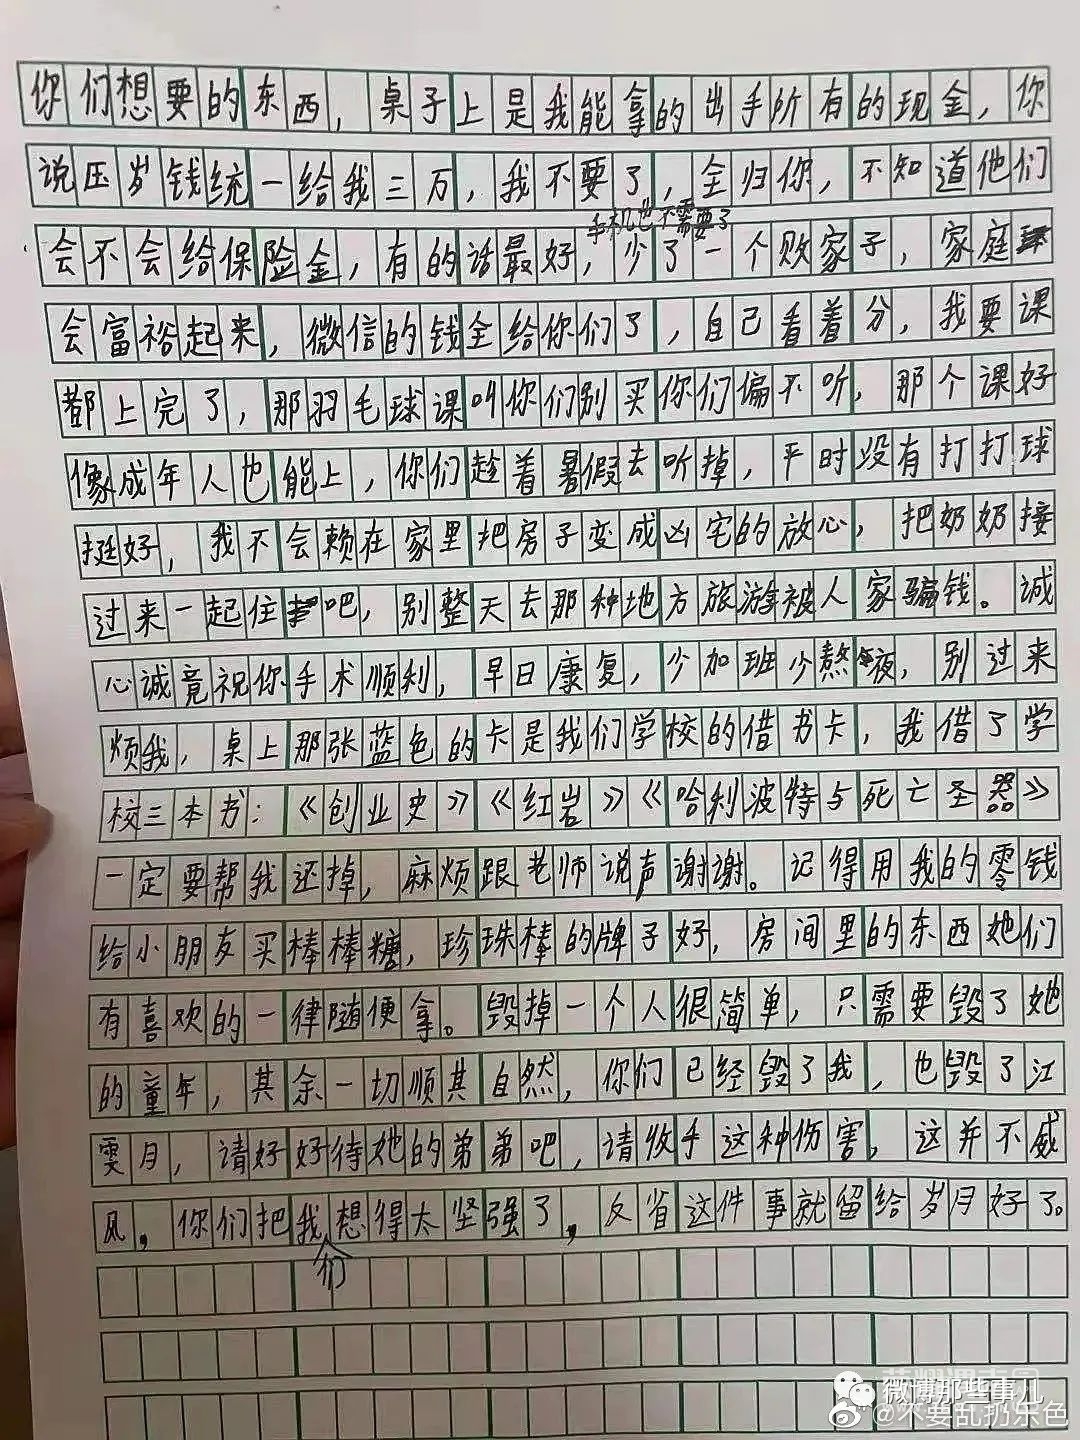 你们想要的东西，桌子上是我能拿的出手所有的现金，你
说压岁钱统一给我三万，我不要了，全归你，不知道他们
手机也不需要了
会不会给保险金，有的话最好，少了一个败家子，家庭
会富裕起来，微信的钱全给你们了，自己看着分，我要课
都上完了，那羽毛球课叫你们别买你们偏不听，那个课好
像成年人也能上，你们趁着暑假去听掉，平时没有打打球
挺好，我不会赖在家里把房子变成凶宅的放心，把奶奶接
过来一起住吧，别整天去那种地方旅游被人家骗钱。诚
心诚竟祝你手术顺利，早日康复，少加班少熬夜，别过来
烦我，桌上那张蓝色的卡是我们学校的借书卡，我借了学
校三本书：《创业史》《红岩》《哈利波特与死亡圣器》
一定要帮我还掉，麻烦跟老师说声谢谢。记得用我的零钱
给小朋友买棒棒糖，珍珠棒的牌子好，房间里的东西她们
有喜欢的一律随便拿。毁掉一个人很简单，只需要毁了她
的童年，其余一切顺其自然，你们已经毁了我，也毁了江
雯月，请好好待她的弟弟吧，请收手这种伤害，这并不威
风，你们把我们想得太坚强了，反省这件事就留给岁月好了。
微博那些事儿
@不要乱扔东色